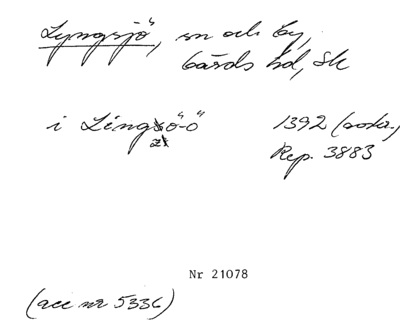 Lyngsjö, sn och by,
Gärds hd, Sk
i Lingzö-ö 1392 (avskr.)
Rep. 3883
Nr 21078
(acc nr 5336)